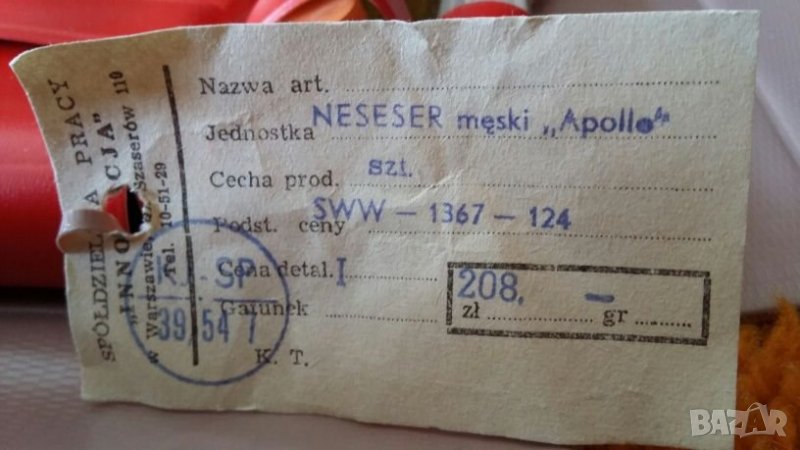 SPÓŁDZIELNIA PRACY
w Warszawie, Szaserów 119
Tel. 10-51-29
Nazwa art.
NESESER męski „Apollo"
Jednostka
Cecha prod. szt.
SWW - 1367 - 124
Podst. ceny
Cena detal. I
208, -
zł gr
Gatunek
K. T.
SP
39 54
BAZAR